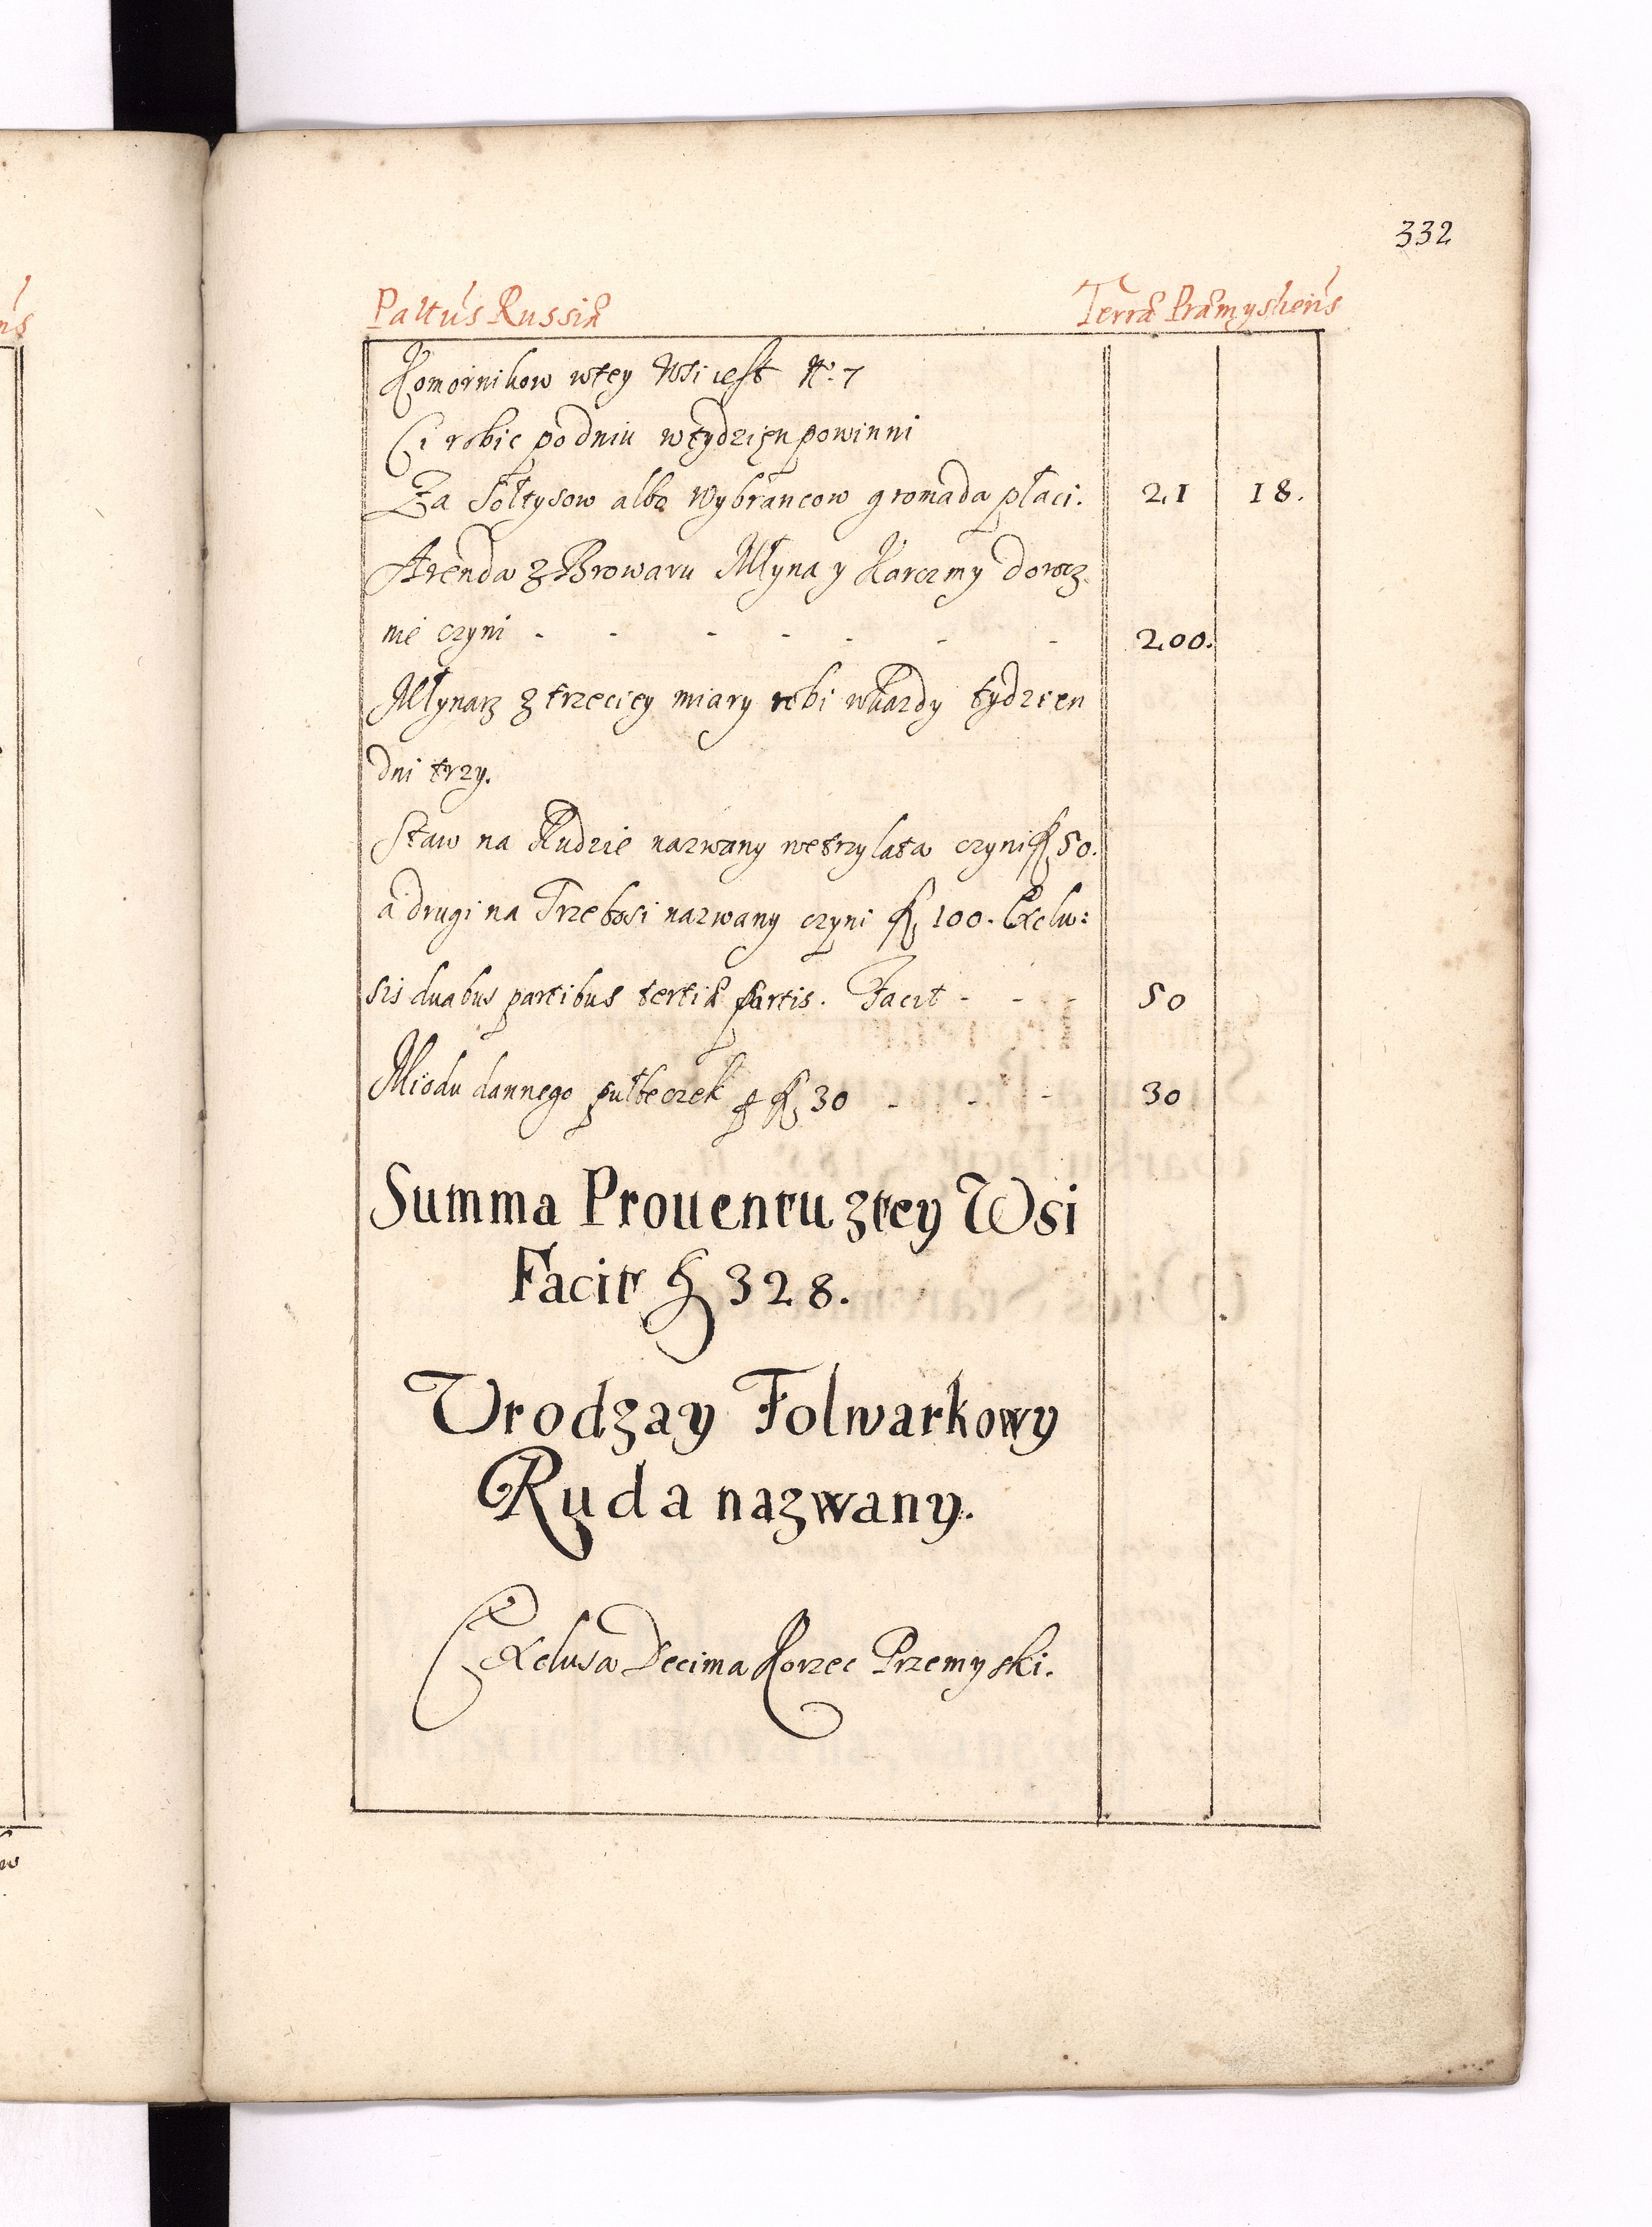 332
Paltus Russiæ Terræ Præmysliens
Komornikow wtey Wsi iest No. 7
Ci robic podniu wtydzien powinni
Za Sołtysow albo Wybrancow gromada płaci. 21 18.
Arenda z Browaru Młyna y Karczmy dorocz
nie czyni - - - - - - - 200.
Młynarz z trzeciey miary robi wkazdy tydzien
dni trzy.
Staw na Rudzie nazwany wetrzylata czyni fl 50.
a drugi na Trzebosi nazwany czyni fl 100. Exclu:
sis duabus partibus tertiæ partis. Facit - - - 50
Miodu dannego pułbeczek p fl 30 - - - 30
Summa Prouentu ztey Wsi
Facit fl 328.
Urodzay Folwarkowy
Ruda nazwany.
Exclusa Decima Korzec Przemyski.